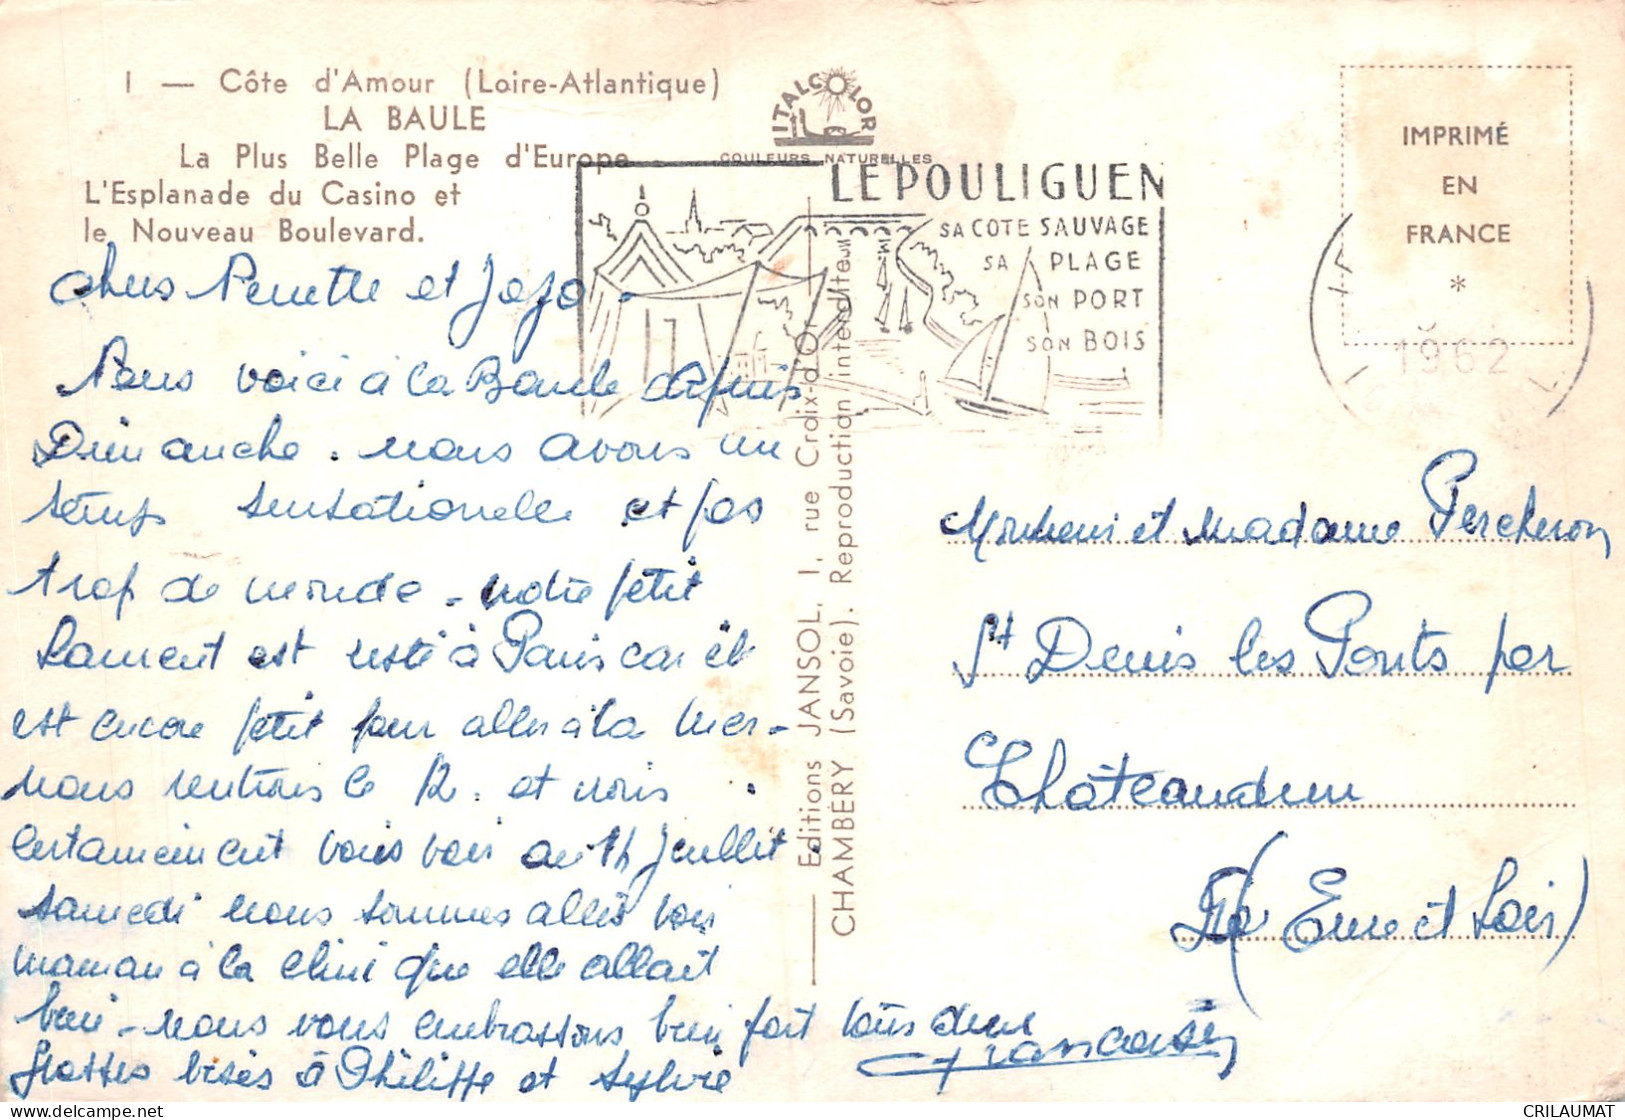 I — Côte d'Amour (Loire-Atlantique)
LA BAULE
La Plus Belle Plage d'Europe
L'Esplanade du Casino et
le Nouveau Boulevard.
ITALCOLOR
COULEURS NATURELLES
LE POULIGUEN
SA COTE SAUVAGE
SA PLAGE
SON PORT
SON BOIS
IMPRIMÉ
EN
FRANCE
*
1962
Chers et Jojo -
Nous voici à la Baule depuis
Dimanche. nous avons un
temps sensationelle et pas
trop de monde - notre petit
Laurent est resté à Paris car il
est encore petit pour aller à la mer -
nous rentrons le 12. et irons
certainement vous voir au 14 Juillet.
samedi nous sommes allés voir
maman à la clini que elle allait
bien - nous vous embrassons bien fort tous deux
Grosses bises à Philippe et Sylvie
Editions JANSOL, 1, rue Croix-d'Or
CHAMBÉRY (Savoie). Reproduction interdite
Monsieur et Madame Percheron
St Denis les Ponts par
Châteaudun
(Eure et Loir)
CRILAUMAT